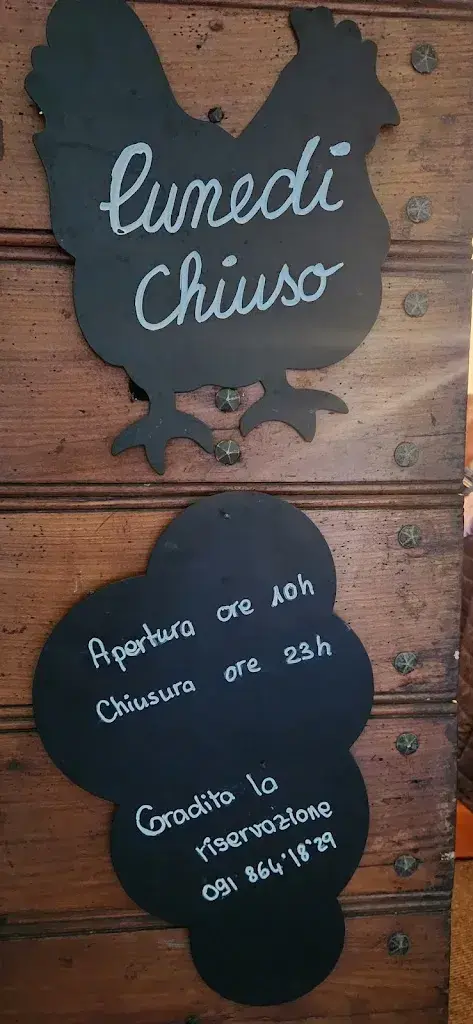 lunedì
chiuso
Apertura ore 10h
Chiusura ore 23h
Gradita la
riservazione
091 864°18°29